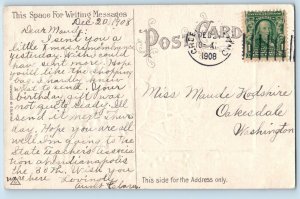 This Space For Writing Messages
Dec 20, 1908
Dear Maude:
I sent you a
little Xmas remembrance
yesterday. Wish I could
have sent more. Hope
you'll like the shopping
bag & hand
to send. Your
birthday gift was
not quite ready. I'll
send it next
day. Hope you are all
well. Am going to the
State Teachers' Associ-
ation at Indianapolis
the 30th. Wish you
were here. Lovingly
Aunt Clara
POST CARD
DEC
1908
Miss Maude
Oakesdale
Washington
This side for the Address only.